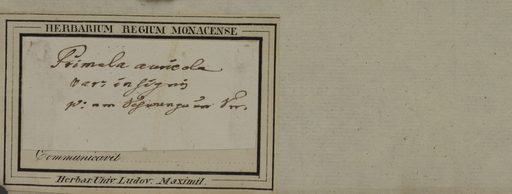 HERBARIUM REGIUM MONACENSE
Primula auricola
Var: insignis
p: am
Communicavit
Herbar. Univ. Ludov. Maximil.